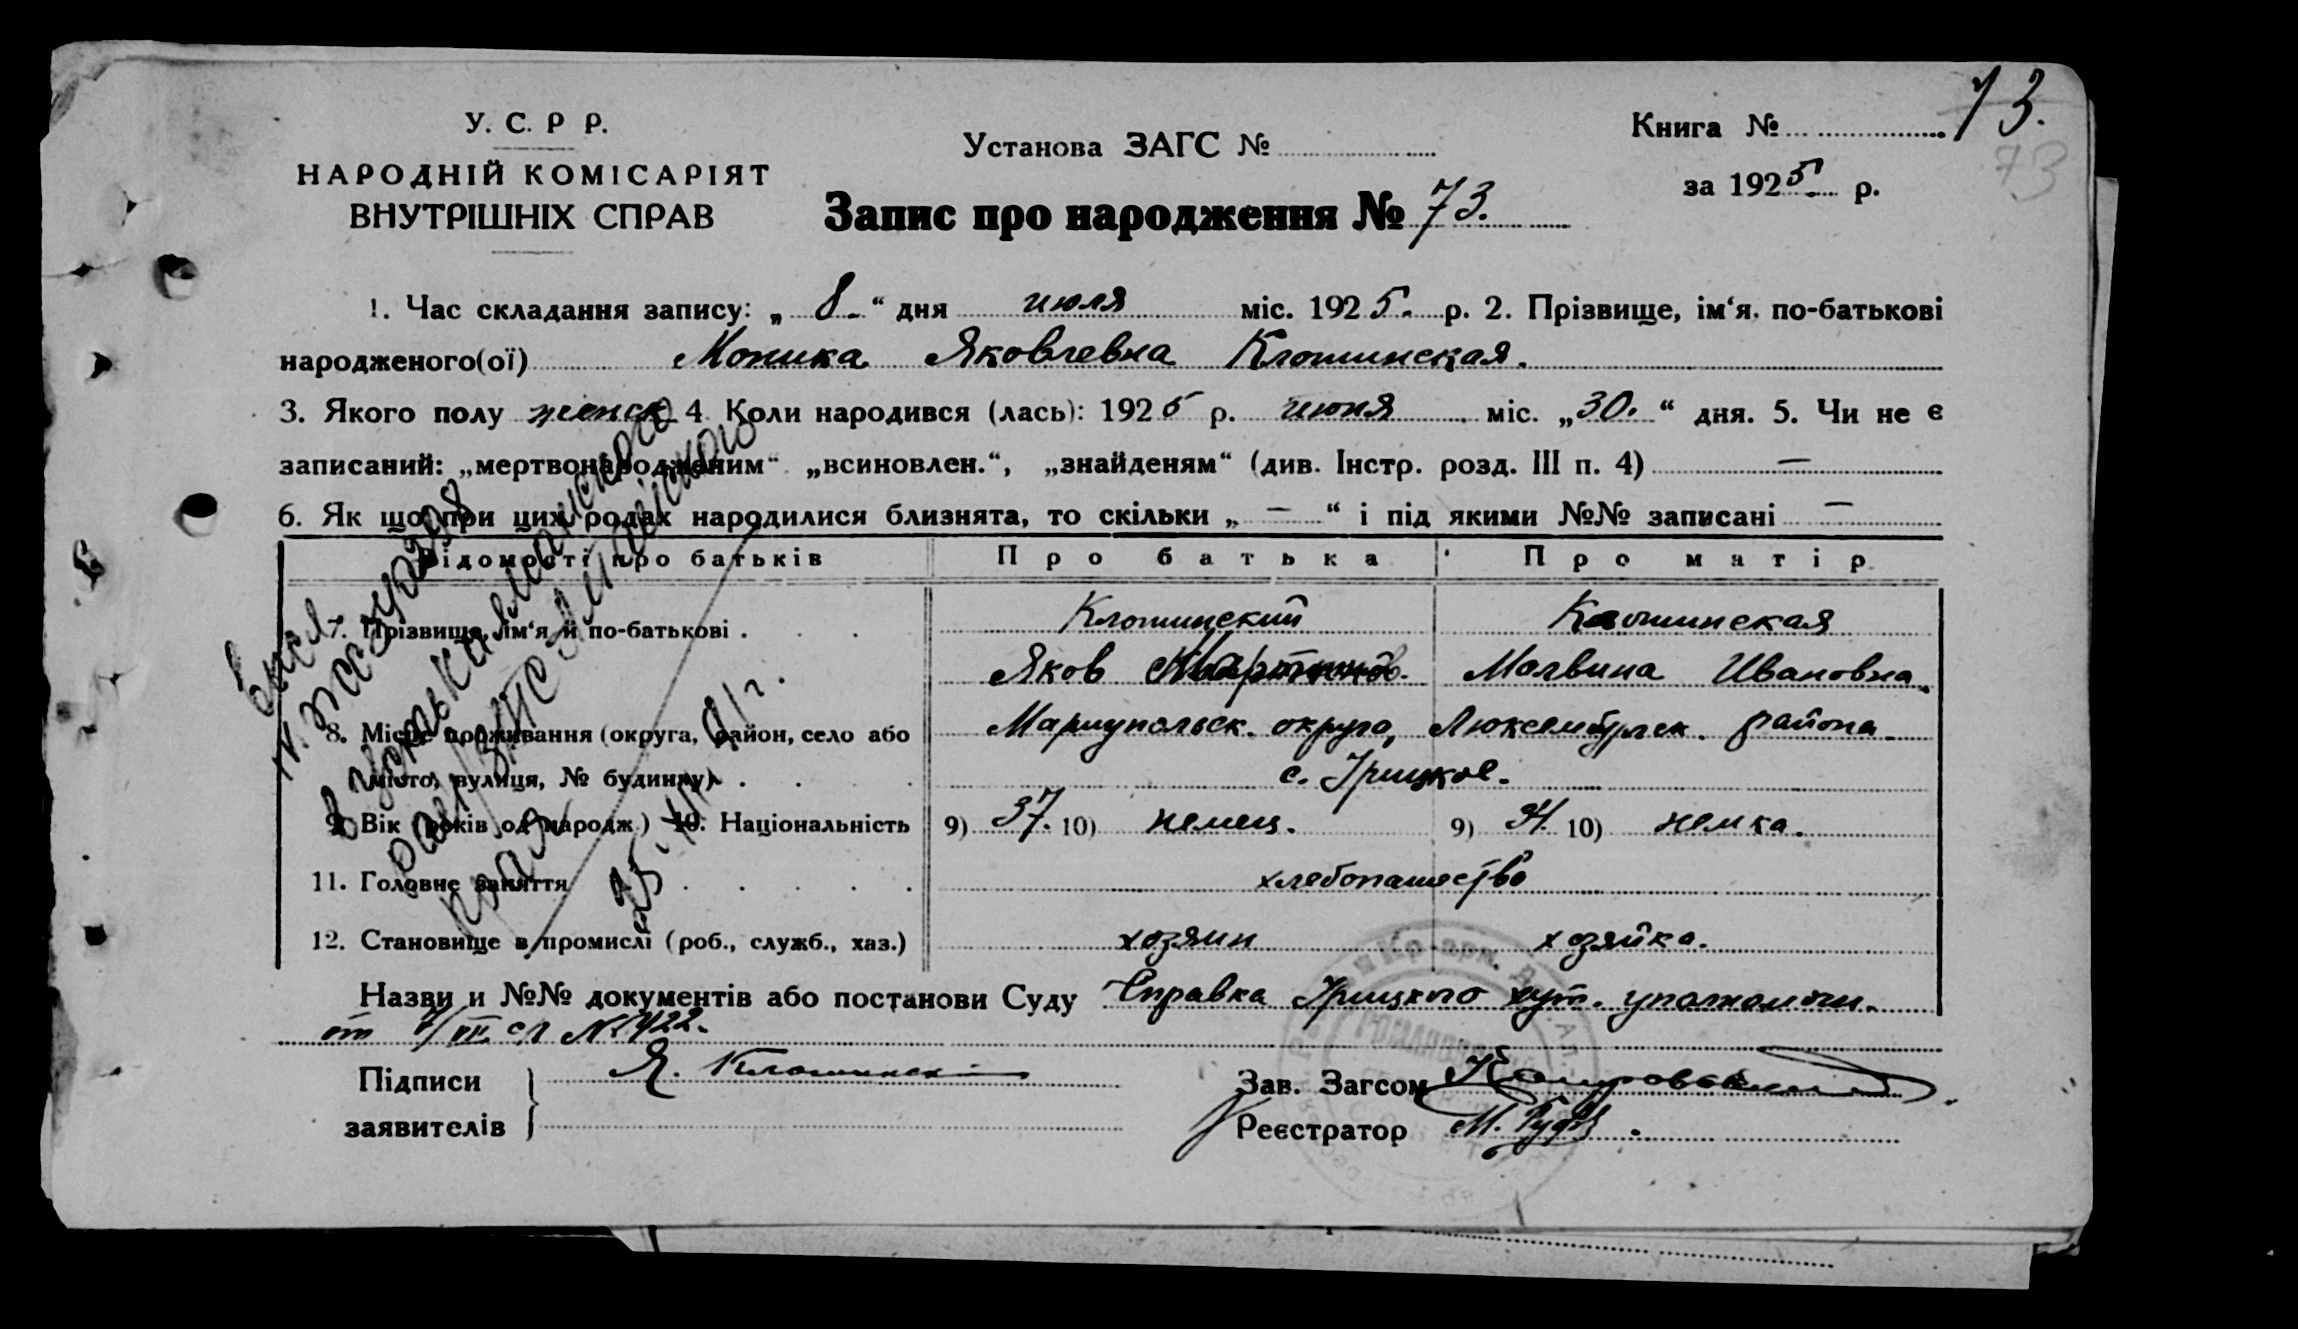 73.
73
У. С. Р Р.
НАРОДНІЙ КОМІСАРІЯТ
ВНУТРІШНІХ СПРАВ
Установа ЗАГС №
Книга №
за 1925 р.
Запис про народження № 73.
1. Час складання запису: „ 8. “ дня июля міс. 1925. р. 2. Прізвище, ім‘я. по-батькові
народженого(ої) Моника Яковлевна Клошинская.
3. Якого полу женск 4 Коли народився (лась): 1925 р. июня міс. „30.“ дня. 5. Чи не є
записаний: „мертвонародженим“ „всиновлен.“, „знайденям“ (див. Інстр. розд. III п. 4) —
6. Як що при цих родах народилися близнята, то скільки „ — “ і під якими №№ записані —
Відомості про батьків Про батька Про матір
7. Прізвище, ім‘я й по-батькові . Клошинский Клошинская
Яков Мальвина Ивановна.
8. Місце проживання (округа, район, село або Мариупольск. округа, Люксембургск. района.
місто, вулиця, № будинку) . с. Грицкое.
9. Вік (років од народж.) 10. Національність 9) 37. 10) немец. 9) 34. 10) немка.
11. Головне заняття хлебопашество
12. Становище в промислі (роб., служб., хаз.) хозяин хозяйка.
Назви и №№ документів або постанови Суду Справка Грицкого хут. уполномоч.
от 7/VII с/г №422.
Підписи Я. Клошинский Зав. Загсом
заявителів Реєстратор М.
25.